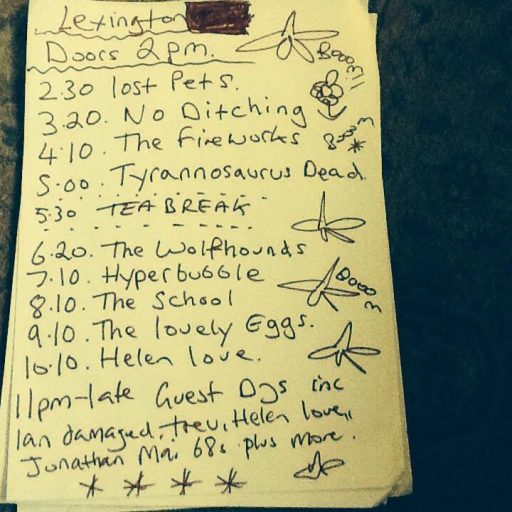 Lexington
Doors 2pm.
Booom!!
2.30 lost Pets.
3.20. No Ditching
4.10. The Fireworks
5.00. Tyrannosaurus Dead.
5.30 TEA BREAK
6.20. The Wolfhounds
7.10. Hyperbubble
8.10. The School
Booom
9.10. The lovely Eggs.
10.10. Helen love.
11pm-late Guest Djs inc
Ian damaged, Trev, Helen love,
Jonathan Mai 68s plus more.